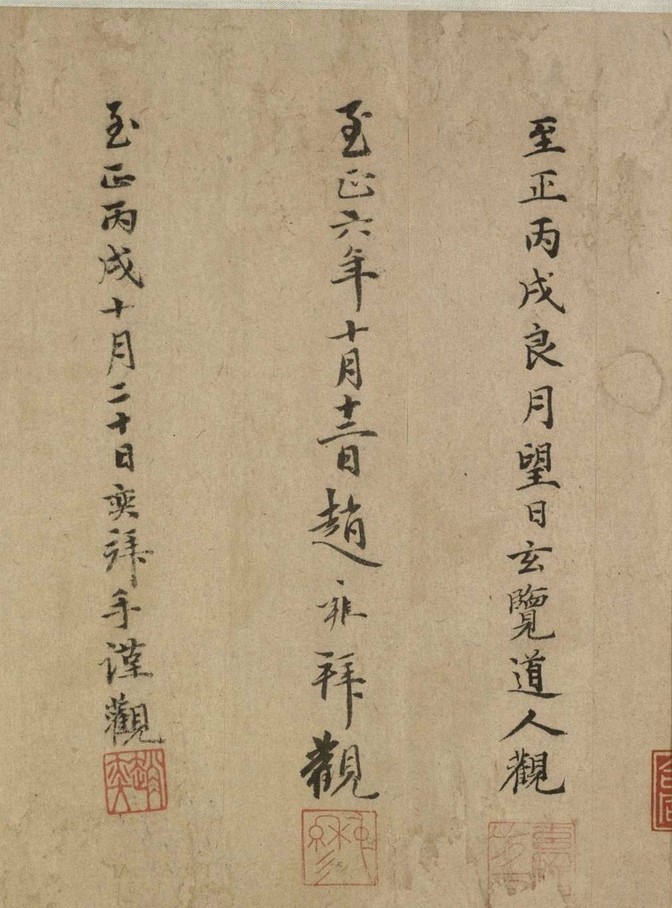 至正丙戌良月望日玄覽道人觀
至正六年十月十三日趙雍拜觀
至正丙戌十月二十日奕拜手謹觀
趙奕